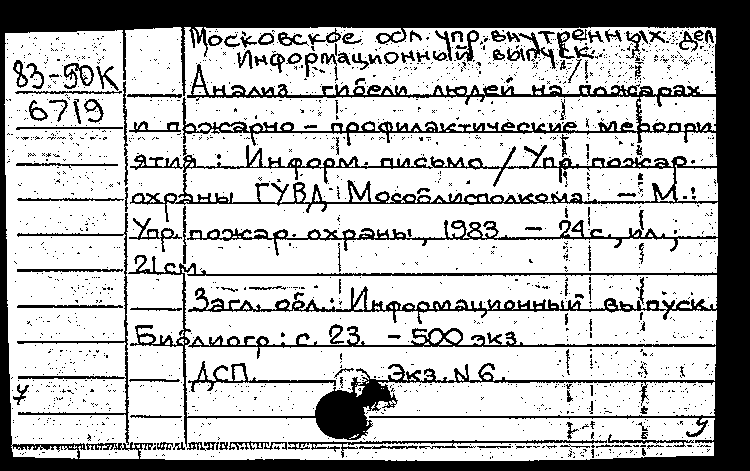 Московское обл. упр. внутренних дел
Информационный выпуск.
83-5ДК
6719
Анализ гибели людей на пожарах
и пожарно - профилактические меропри-
ятия : Информ. письмо / Упр. пожар.
охраны ГУВД Мособлисполкома. - М.:
Упр. пожар. охраны, 1983. - 24 с., ил.;
21 см.
Загл. обл.: Информационный выпуск.
Библиогр: с. 23. - 500 экз.
ДСП. Экз. N 6.
У